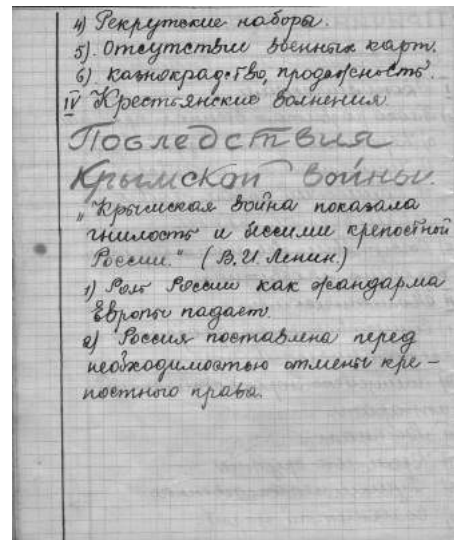 4) Рекрутские наборы.
5). Отсутствии военных карт.
6). казнокрадство, продажность.
IV Крестьянские волнения
Последствия
Крымской войны.
„Крымская война показала
гнилость и бессилие крепостной
России." (В.И. Ленин.)
1) Роль России как жандарма
Европы падает.
2) Россия поставлена перед
необходимостью отмены кре-
постного права.